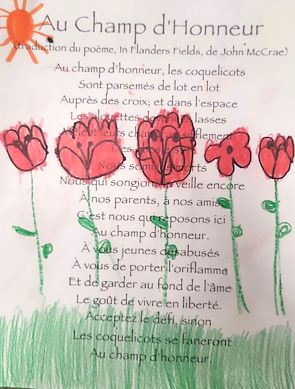 Au Champ d'Honneur
(traduction du poème, In Flanders Fields, de John McCrae)
Au champ d'honneur, les coquelicots
Sont parsemés de lot en lot
Auprès des croix; et dans l'espace
Les lasses
leurs sifflement
Nous morts
Nous qui songions veille encore
À nos parents, à nos amis
C'est nous qui reposons ici
Au champ d'honneur.
À vous jeunes désabusés
À vous de porter l'oriflamme
Et de garder au fond de l'âme
Le goût de vivre en liberté.
Acceptez le défi, sinon
Les coquelicots se faneront
Au champ d'honneur.